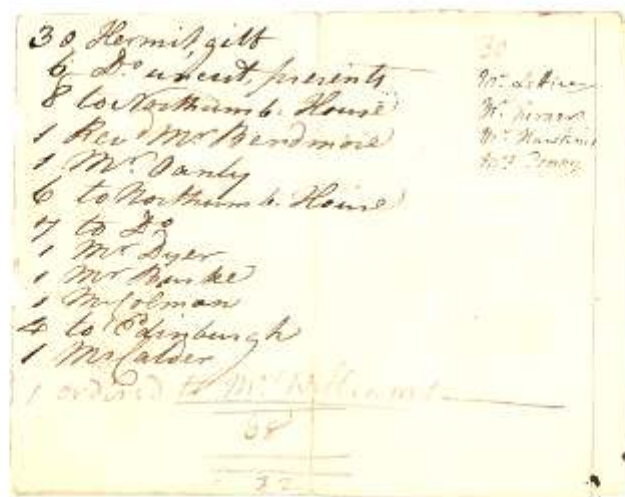 30 Hermit, gilt
6 Do. uncut, presents
8 to Northumb. House
1 Revd Mr Berdmore
1 Mr.
6 to Northumb. House
7 to Do
1 Mr Dyer
1 Mr Burke
1 Mr Colman
4 to Edinburgh
1 Mr Calder
1 ordered to Mr.
68
32
30
Mr.
Mr.
Mr. Hawkins
Mr. Percy